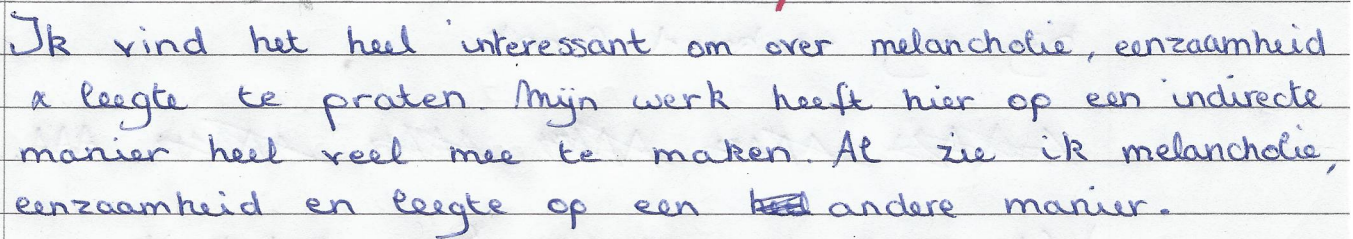 Ik vind het heel interessant om over melancholie, eenzaamheid
& leegte te praten. Mijn werk heeft hier op een indirecte
manier heel veel mee te maken. Al zie ik melancholie,
eenzaamheid en leegte op een andere manier.